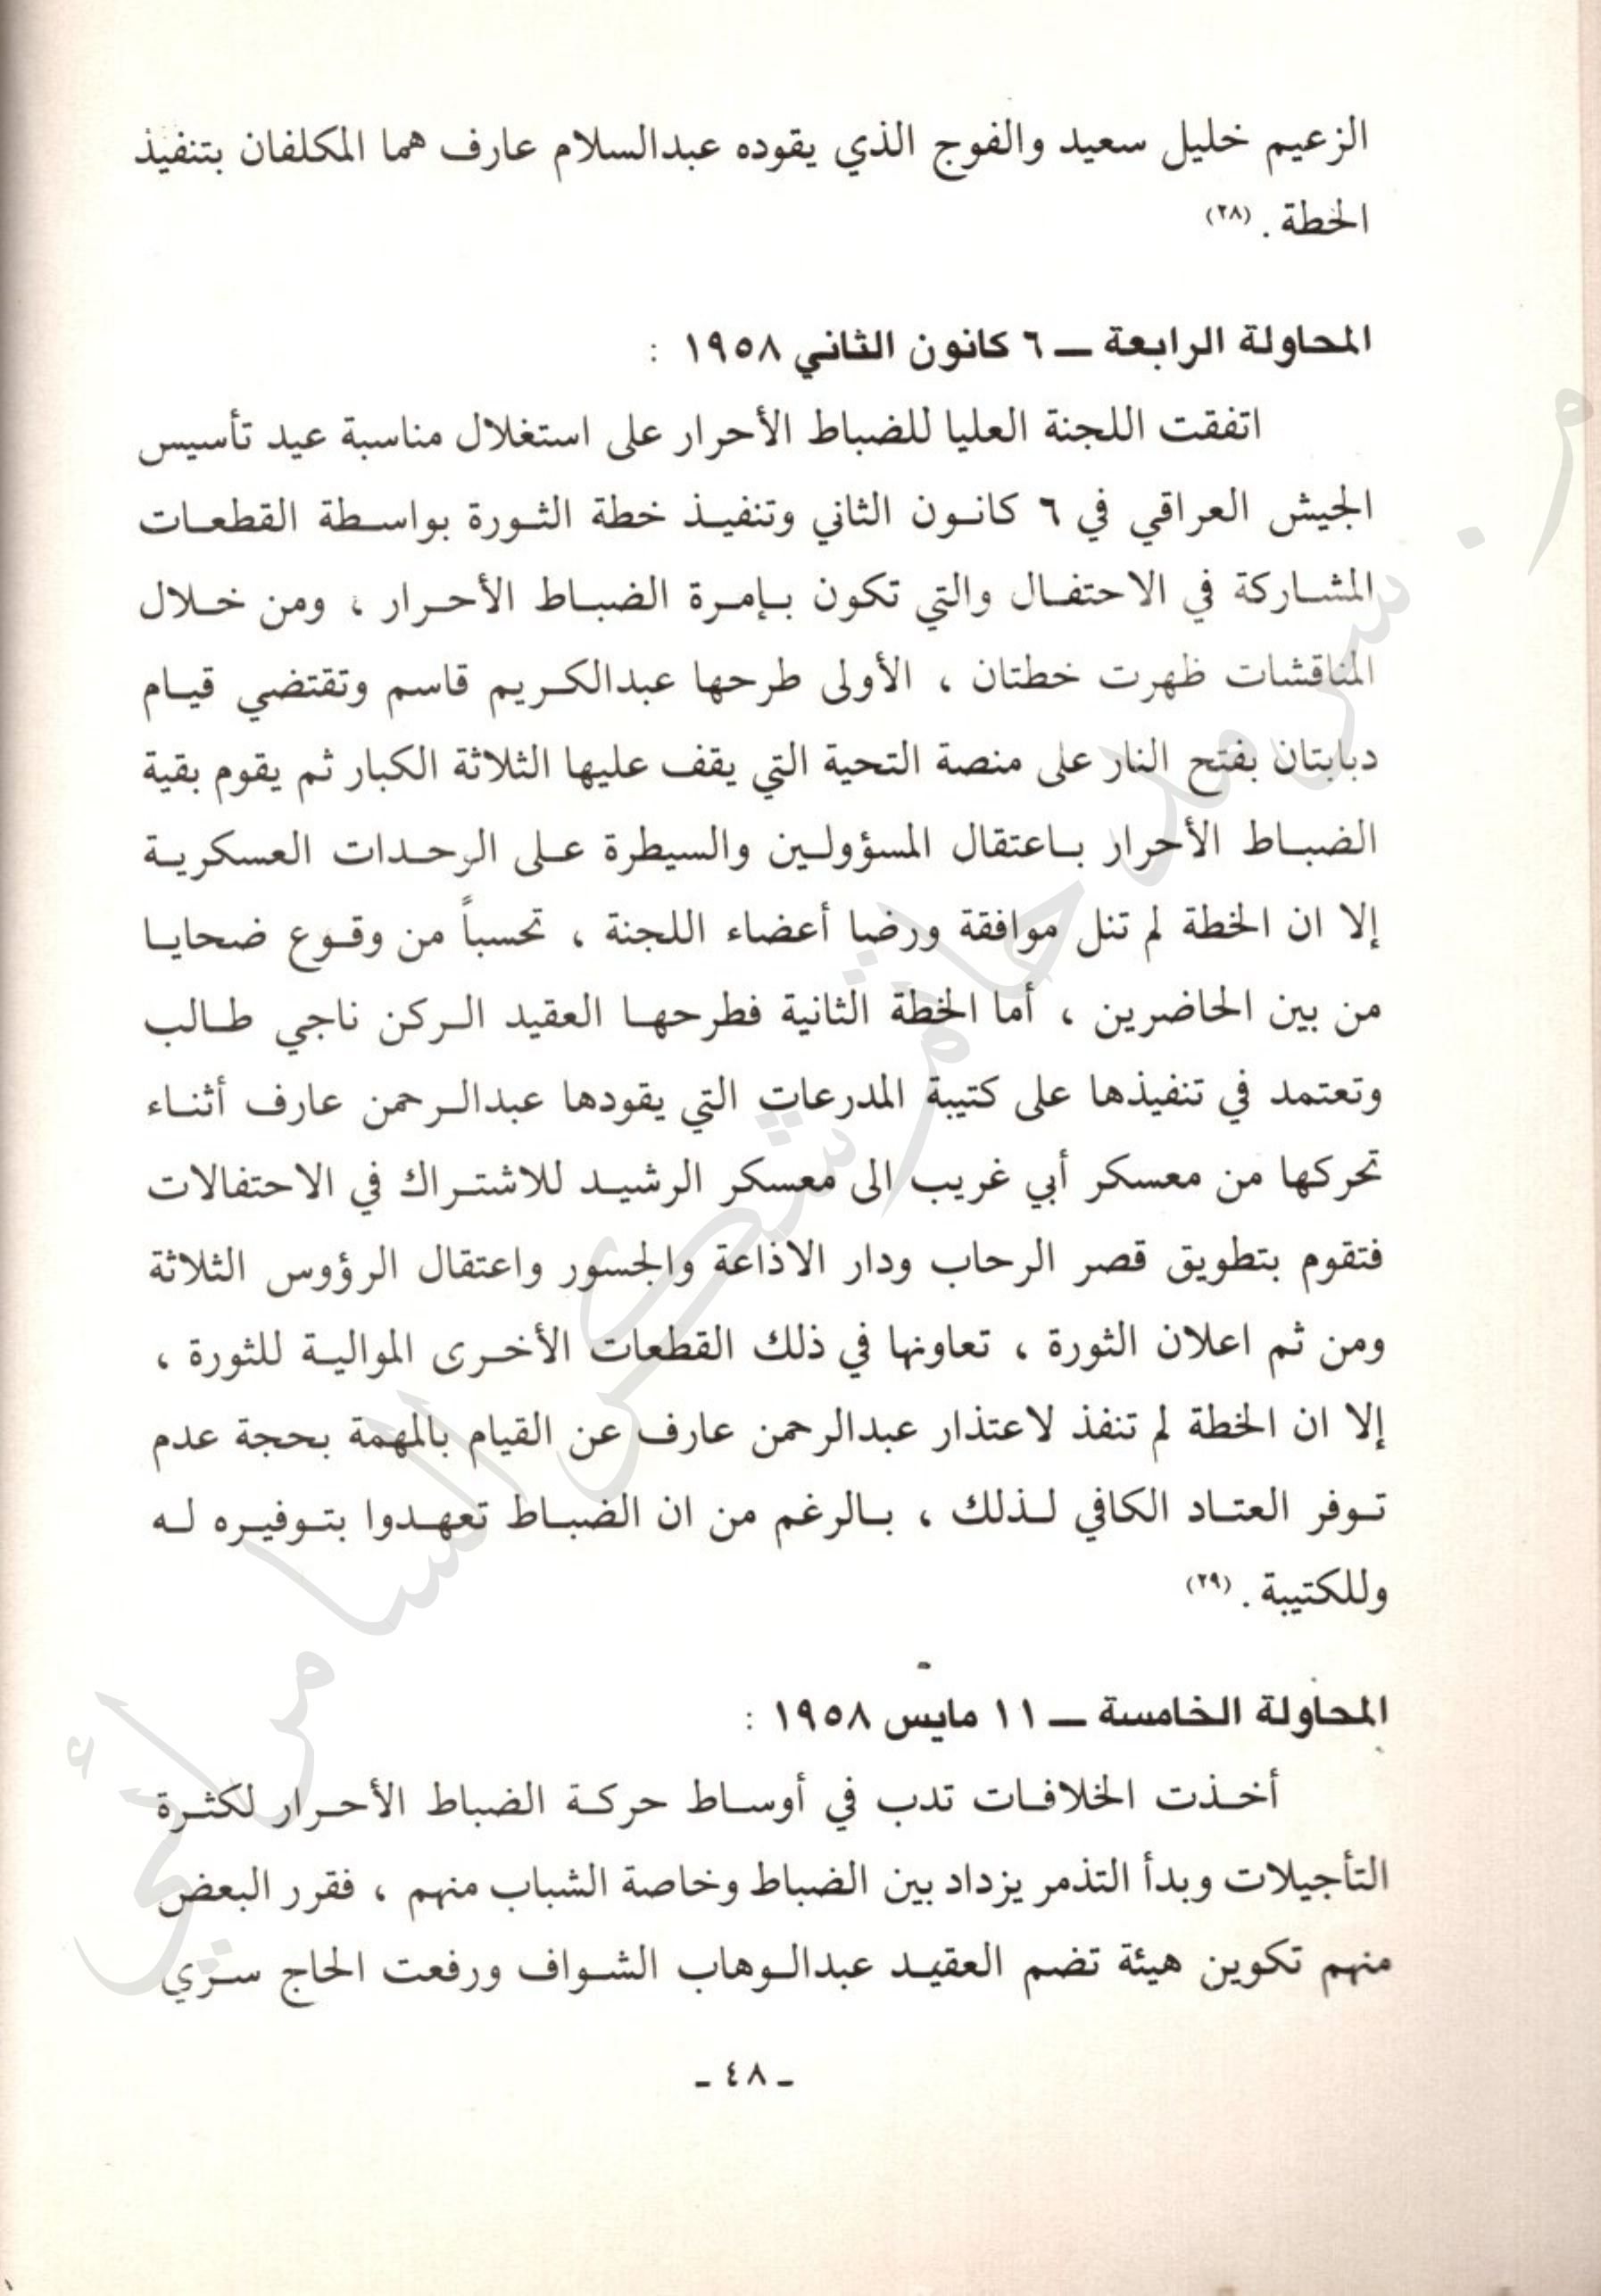 الزعيم خليل سعيد والفوج الذي يقوده عبدالسلام عارف هما المكلفان بتنفيذ
الخطة . (٢٨)
المحاولة الرابعة ــ ٦ كانون الثاني ١٩٥٨ :
اتفقت اللجنة العليا للضباط الأحرار على استغلال مناسبة عيد تأسيس
الجيش العراقي في ٦ كانون الثاني وتنفيذ خطة الثورة بواسطة القطعات
المشاركة في الاحتفال والتي تكون بإمرة الضباط الأحرار ، ومن خلال
المناقشات ظهرت خطتان ، الأولى طرحها عبدالكريم قاسم وتقتضي قيام
دبابتان بفتح النار على منصة التحية التي يقف عليها الثلاثة الكبار ثم يقوم بقية
الضباط الأحرار باعتقال المسؤولين والسيطرة على الرحدات العسكرية
إلا ان الخطة لم تنل موافقة ورضا أعضاء اللجنة ، تحسباً من وقوع ضحايا
من بين الحاضرين ، أما الخطة الثانية فطرحها العقيد الركن ناجي طالب
وتعتمد في تنفيذها على كتيبة المدرعات التي يقودها عبدالرحمن عارف أثناء
تحركها من معسكر أبي غريب الى معسكر الرشيد للاشتراك في الاحتفالات
فتقوم بتطويق قصر الرحاب ودار الاذاعة والجسور واعتقال الرؤوس الثلاثة
ومن ثم اعلان الثورة ، تعاونها في ذلك القطعات الأخرى الموالية للثورة ،
إلا ان الخطة لم تنفذ لاعتذار عبدالرحمن عارف عن القيام بالمهمة بحجة عدم
توفر العتاد الكافي لذلك ، بالرغم من ان الضباط تعهدوا بتوفيره له
وللكتيبة . (٢٩)
المحاولة الخامسة ــ ١١ مايس ١٩٥٨ :
أخذت الخلافات تدب في أوساط حركة الضباط الأحرار لكثرة
التأجيلات وبدأ التذمر يزداد بين الضباط وخاصة الشباب منهم ، فقرر البعض
منهم تكوين هيئة تضم العقيد عبدالوهاب الشواف ورفعت الحاج سري
ـ ٤٨ ـ
م. سرمد حاتم شكر السامرائي